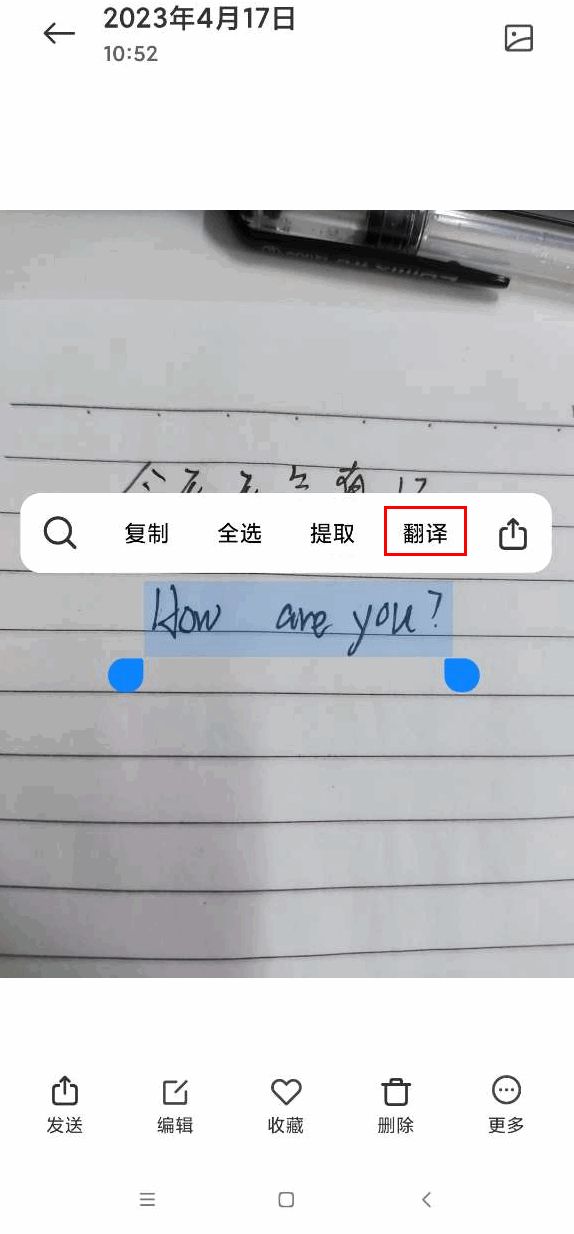 2023年4月17日
10:52
复制 全选 提取 翻译
How are you?
发送 编辑 收藏 删除 更多